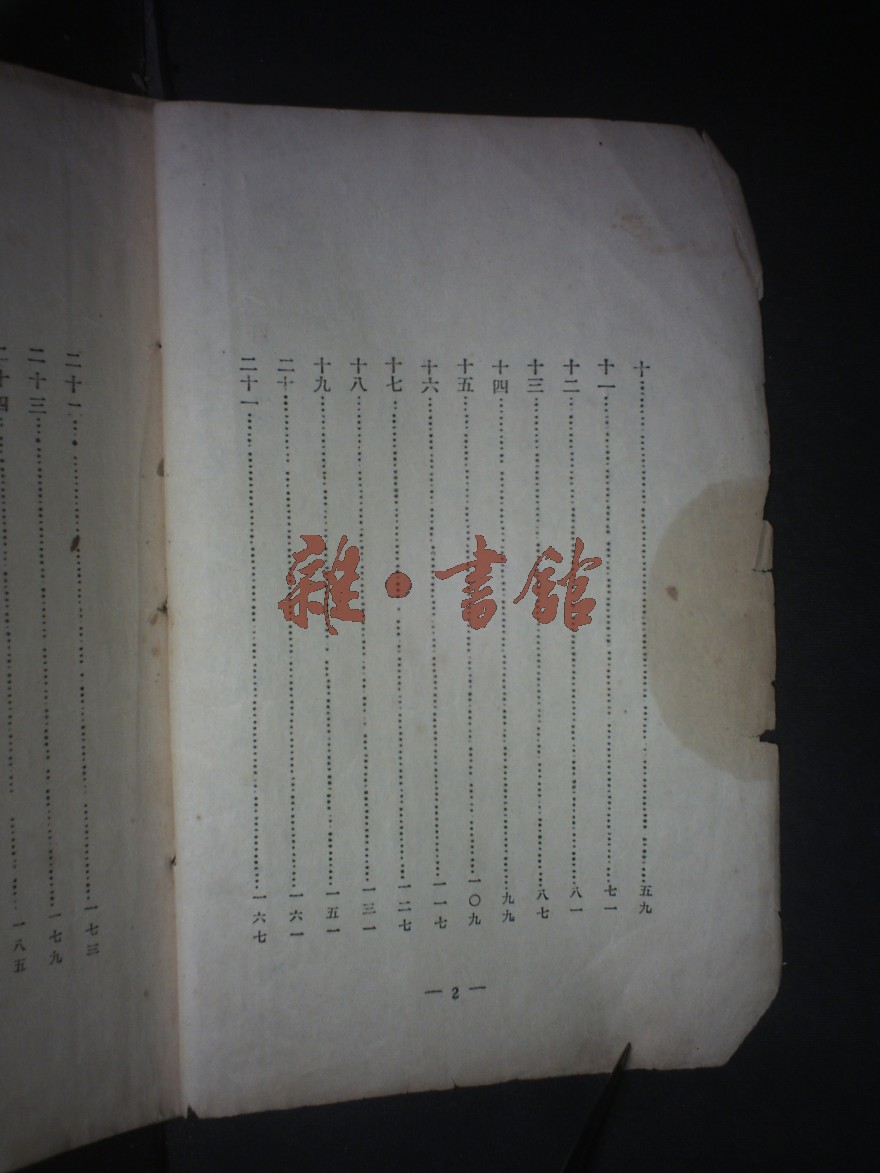 十……五九
十一……七一
十二……八一
十三……八七
十四……九九
十五……一〇九
十六……一一七
十七……一二七
十八……一三一
十九……一五一
二十……一六一
二十一……一六七
— 2 —
……一七三
二十三……一七九
二十四……一八五
雜·書館